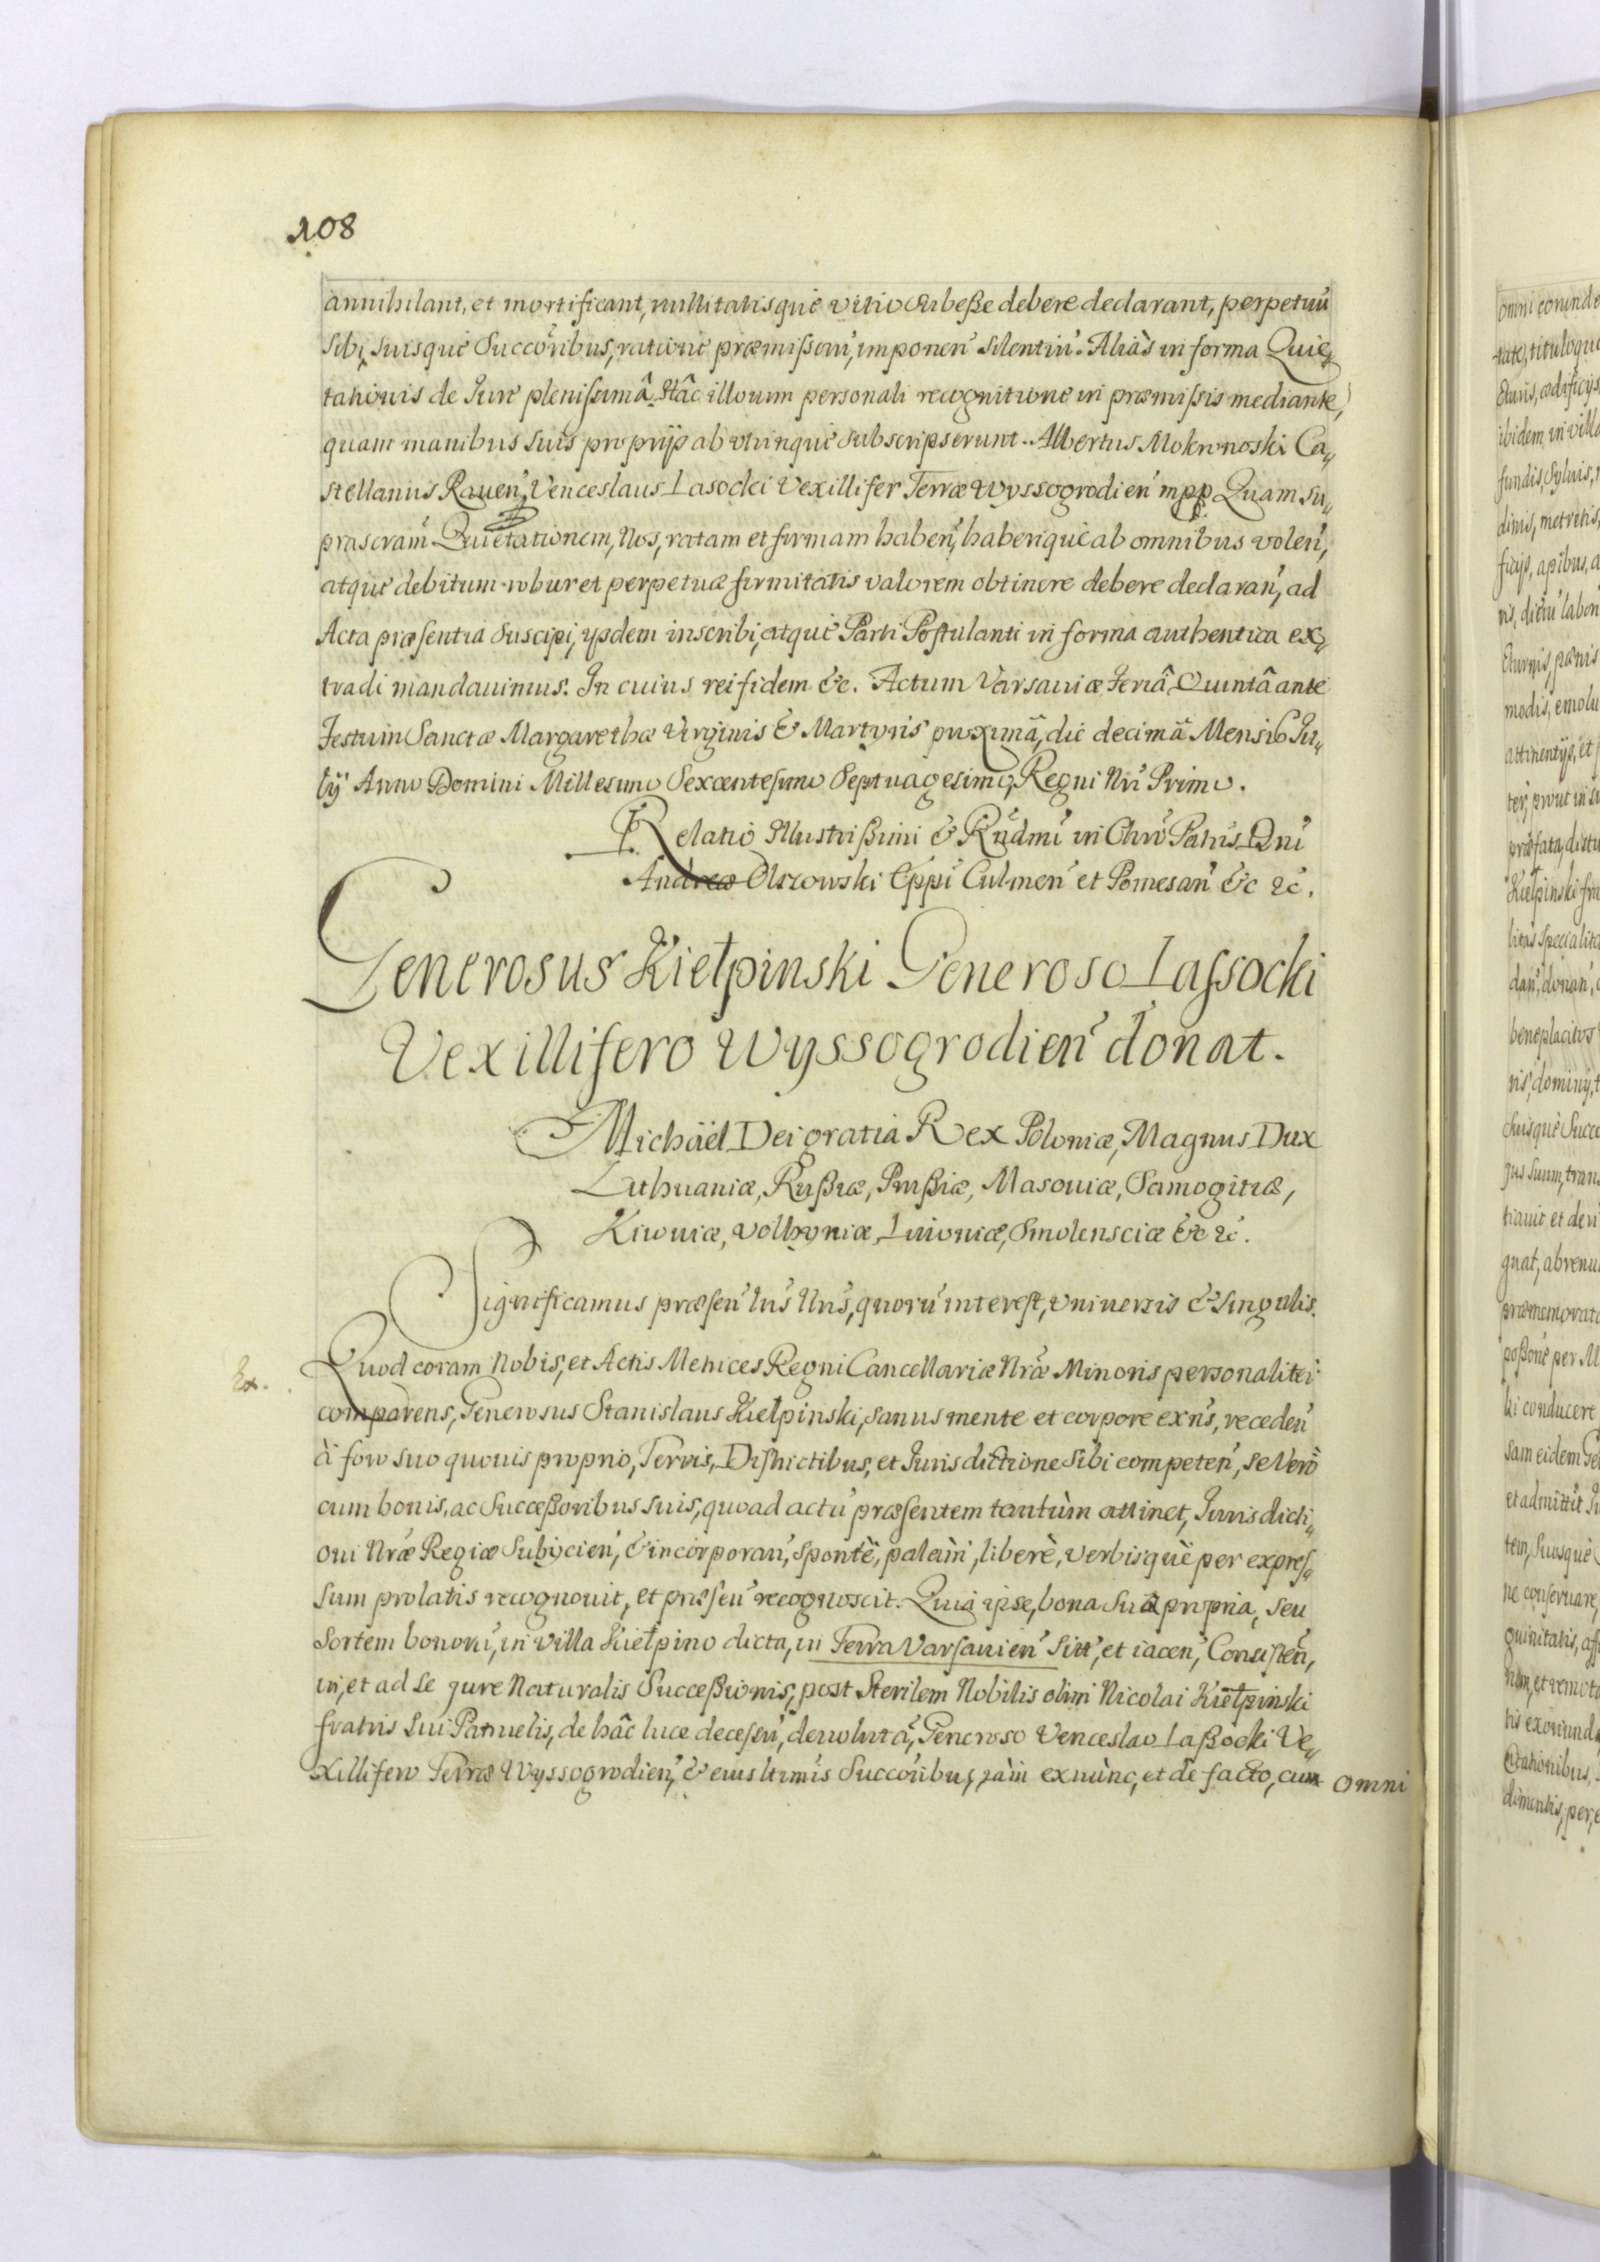 108
annihilant, et mortificant, nullitatisquè vitio subeße debere declarant, perpetuũ
sibi, suisquè Succoribus, rationè præmissorũ, imponeñ silentiũ. Aliàs in forma Quie„
tationis de Jure plenissimâ. Hâc illorum personali recognitione in præmissis mediante,
quam manibus suis proprijs ab vtrinquè subscripserunt. Albertus Mokronoski Ca„
stellanus Raueñ, Venceslaus Lasocki Vexillifer Terræ Wyssogrodieñ mpp. Quam su„
prascram̃ Quietationem, Nos, ratam et firmam habeñ, haberiquè ab omnibus voleñ,
atquè debitum robur et perpetuæ firmitatis valorem obtinere debere declarañ, ad
Acta præsentia suscipi, ijsdem inscribi, atquè Parti Postulanti in forma authentica ex„
tradi mandauimus. In cuius rei fidem &c. Actum Varsauiæ Feriâ Quintâ ante
Festum Sanctæ Margarethæ Virginis & Martyris proximâ, die decimâ Mensis Ju„
lij Anno Domini Millesimo Sexcentesimo Septuagesimo, Regni Nri Primo.
Relatio Illustrißimi & Rũdmi in Chrõ Patris Dni
Andreæ Olszowski Eppi Culmeñ et Pomesañ &c &c.
Generosus Kiełpinski Generoso Lassocki
Vexillifero Wyssogrodieñ donat.
Michaël Dei gratia Rex Poloniæ, Magnus Dux
Lithuaniæ, Rußiæ, Prußiæ, Masouiæ, Samogitiæ,
Kiiouiæ, Volhyniæ, Liuoniæ, Smolensciæ &c &c.
Significamus præseñ Irĩs Nrĩs, quorũ interest, vniuersis & singulis.
Ex.
Quod coram Nobis, et Actis Metrices Regni Cancellariæ Nræ Minoris personaliter
comparens, Generosus Stanislaus Kiełpinski, sanus mente et corpore exñs, recedeñ
à foro suo quouis proprio, Terris, Districtibus, et Jurisdictione sibi competeñ, se verò
cum bonis, ac Succeßoribus suis, quoad actũ præsentem tantùm attinet, Jurisdicti„
oni Nræ Regiæ subijcieñ, & incorporañ, spontè, palàm, liberè, verbisquè per expres„
sum prolatis recognouit, et præseñ recognoscit. Quia ipse, bona sua propria, seu
sortem bonorũ, in villa Kiełpino dicta, in Terra Varsauieñ sitt, et iaceñ, Consisteñ,
in, et ad se jure Naturalis Succeßionis, post sterilem Nobilis olim Nicolai Kiełpinski
fratris sui Patruelis, de hâc luce decessũ, deuolutã, Generoso Venceslao Laßocki Ve„
xillifero Terræ Wyssogrodieñ, & eius ltimis Succoribus, jàm exnùnc, et de facto, cum omni